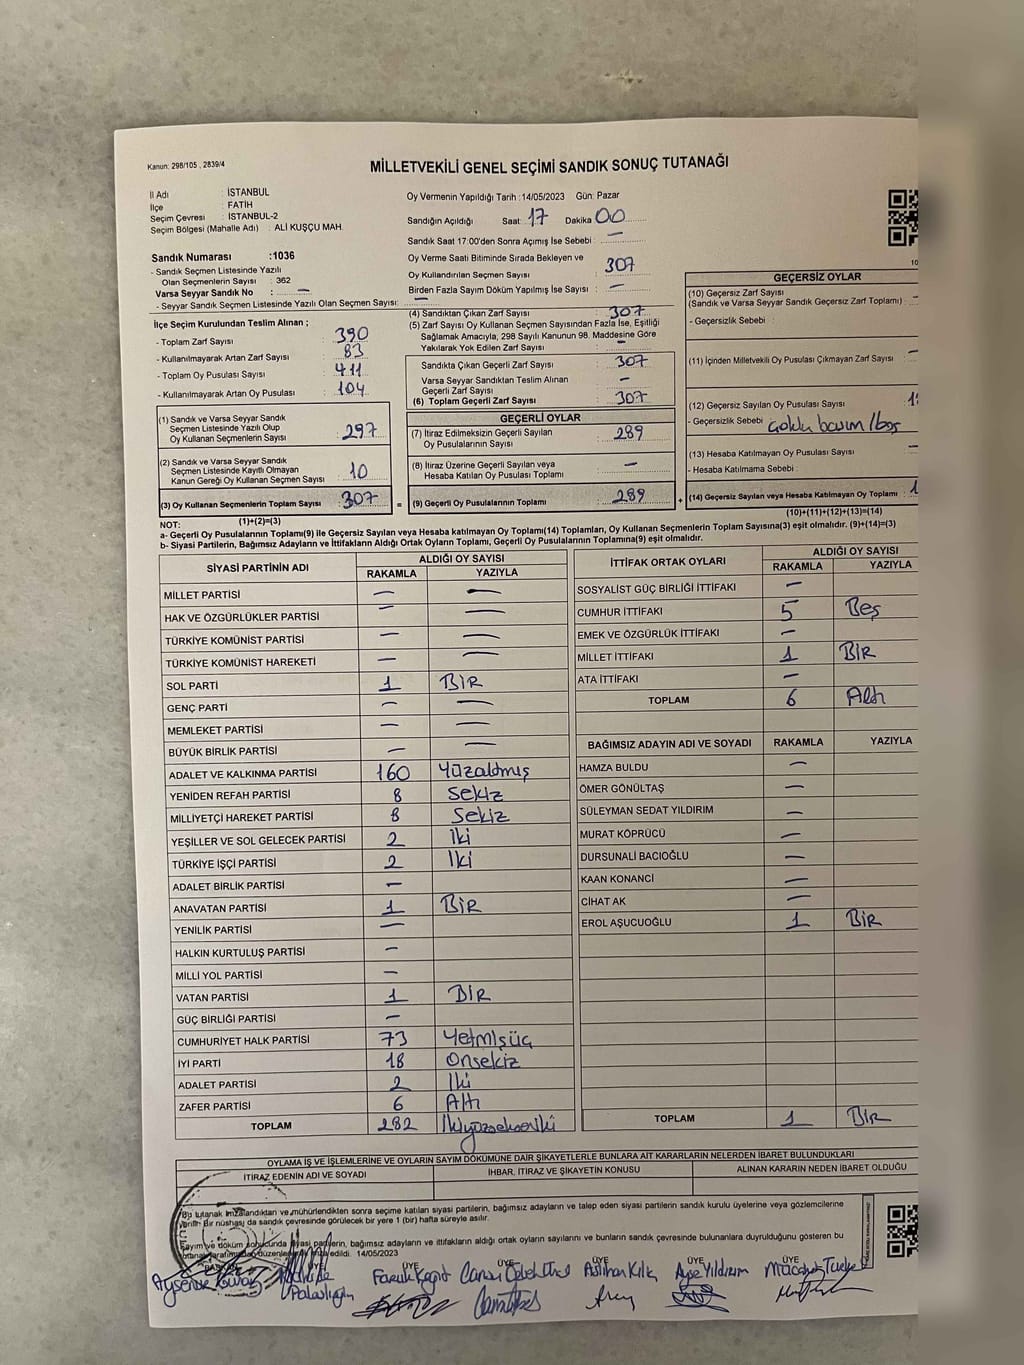 Kanun: 298/105 , 2839/4
MİLLETVEKİLİ GENEL SEÇİMİ SANDIK SONUÇ TUTANAĞI
İl Adı : İSTANBUL
İlçe : FATİH
Seçim Çevresi : İSTANBUL-2
Seçim Bölgesi (Mahalle Adı) : ALİ KUŞÇU MAH.
Sandık Numarası :1036
- Sandık Seçmen Listesinde Yazılı
Olan Seçmenlerin Sayısı : 362
Varsa Seyyar Sandık No : —
- Seyyar Sandık Seçmen Listesinde Yazılı Olan Seçmen Sayısı: —
Oy Vermenin Yapıldığı Tarih :14/05/2023 Gün: Pazar
Sandığın Açıldığı Saat: 17 Dakika 00
Sandık Saat 17:00'den Sonra Açımış İse Sebebi : —
Oy Verme Saati Bitiminde Sırada Bekleyen ve
Oy Kullandırılan Seçmen Sayısı : 307
Birden Fazla Sayım Döküm Yapılmış İse Sayısı : —
İlçe Seçim Kurulundan Teslim Alınan ;
- Toplam Zarf Sayısı : 390
- Kullanılmayarak Artan Zarf Sayısı : 83
- Toplam Oy Pusulası Sayısı : 411
- Kullanılmayarak Artan Oy Pusulası : 104
(1) Sandık ve Varsa Seyyar Sandık
Seçmen Listesinde Yazılı Olup
Oy Kullanan Seçmenlerin Sayısı : 297
(2) Sandık ve Varsa Seyyar Sandık
Seçmen Listesinde Kayıtlı Olmayan
Kanun Gereği Oy Kullanan Seçmen Sayısı : 10
(3) Oy Kullanan Seçmenlerin Toplam Sayısı : 307
(1)+(2)=(3)
(4) Sandıktan Çıkan Zarf Sayısı : 307
(5) Zarf Sayısı Oy Kullanan Seçmen Sayısından Fazla İse, Eşitliği
Sağlamak Amacıyla, 298 Sayılı Kanunun 98. Maddesine Göre
Yakılarak Yok Edilen Zarf Sayısı : —
Sandıkta Çıkan Geçerli Zarf Sayısı : 307
Varsa Seyyar Sandıktan Teslim Alınan
Geçerli Zarf Sayısı : —
(6) Toplam Geçerli Zarf Sayısı : 307
GEÇERLİ OYLAR
(7) İtiraz Edilmeksizin Geçerli Sayılan
Oy Pusulalarının Sayısı : 289
(8) İtiraz Üzerine Geçerli Sayılan veya
Hesaba Katılan Oy Pusulası Toplamı : —
= (9) Geçerli Oy Pusulalarının Toplamı : 289 +
10
GEÇERSİZ OYLAR
(10) Geçersiz Zarf Sayısı
(Sandık ve Varsa Seyyar Sandık Geçersiz Zarf Toplamı) : —
- Geçersizlik Sebebi :
(11) İçinden Milletvekili Oy Pusulası Çıkmayan Zarf Sayısı : —
(12) Geçersiz Sayılan Oy Pusulası Sayısı : 1
- Geçersizlik Sebebi :
(13) Hesaba Katılmayan Oy Pusulası Sayısı : —
- Hesaba Katılmama Sebebi :
(14) Geçersiz Sayılan veya Hesaba Katılmayan Oy Toplamı : 1
(10)+(11)+(12)+(13)=(14)
NOT:
a- Geçerli Oy Pusulalarının Toplamı(9) ile Geçersiz Sayılan veya Hesaba katılmayan Oy Toplamı(14) Toplamları, Oy Kullanan Seçmenlerin Toplam Sayısına(3) eşit olmalıdır. (9)+(14)=(3)
b- Siyasi Partilerin, Bağımsız Adayların ve İttifakların Aldığı Ortak Oyların Toplamı, Geçerli Oy Pusulalarının Toplamına(9) eşit olmalıdır.
SİYASİ PARTİNİN ADI ALDIĞI OY SAYISI
RAKAMLA YAZIYLA
MİLLET PARTİSİ — —
HAK VE ÖZGÜRLÜKLER PARTİSİ — —
TÜRKİYE KOMÜNİST PARTİSİ — —
TÜRKİYE KOMÜNİST HAREKETİ — —
SOL PARTİ 1 BİR
GENÇ PARTİ — —
MEMLEKET PARTİSİ — —
BÜYÜK BİRLİK PARTİSİ — —
ADALET VE KALKINMA PARTİSİ 160 Yüzaltmış
YENİDEN REFAH PARTİSİ 8 Sekiz
MİLLİYETÇİ HAREKET PARTİSİ 8 Sekiz
YEŞİLLER VE SOL GELECEK PARTİSİ 2 İki
TÜRKİYE İŞÇİ PARTİSİ 2 İki
ADALET BİRLİK PARTİSİ —
ANAVATAN PARTİSİ 1 BİR
YENİLİK PARTİSİ —
HALKIN KURTULUŞ PARTİSİ —
MİLLİ YOL PARTİSİ —
VATAN PARTİSİ 1 BİR
GÜÇ BİRLİĞİ PARTİSİ —
CUMHURİYET HALK PARTİSİ 73 Yetmişüç
İYİ PARTİ 18 Onsekiz
ADALET PARTİSİ 2 İki
ZAFER PARTİSİ 6 Altı
TOPLAM 282 İkiyüzsekseniki
İTTİFAK ORTAK OYLARI ALDIĞI OY SAYISI
RAKAMLA YAZIYLA
SOSYALİST GÜÇ BİRLİĞİ İTTİFAKI —
CUMHUR İTTİFAKI 5 Beş
EMEK VE ÖZGÜRLÜK İTTİFAKI —
MİLLET İTTİFAKI 1 BİR
ATA İTTİFAKI —
TOPLAM 6 Altı
BAĞIMSIZ ADAYIN ADI VE SOYADI RAKAMLA YAZIYLA
HAMZA BULDU —
ÖMER GÖNÜLTAŞ —
SÜLEYMAN SEDAT YILDIRIM —
MURAT KÖPRÜCÜ —
DURSUNALİ BACIOĞLU —
KAAN KONANCİ —
CİHAT AK —
EROL AŞUCUOĞLU 1 BİR
TOPLAM 1 BİR
OYLAMA İŞ VE İŞLEMLERİNE VE OYLARIN SAYIM DÖKÜMÜNE DAİR ŞİKAYETLERLE BUNLARA AİT KARARLARIN NELERDEN İBARET BULUNDUKLARI
İTİRAZ EDENİN ADI VE SOYADI İHBAR, İTİRAZ VE ŞİKAYETİN KONUSU ALINAN KARARIN NEDEN İBARET OLDUĞU
Bu tutanak imzalandıktan ve mühürlendikten sonra seçime katılan siyasi partilerin, bağımsız adayların ve talep eden siyasi partilerin sandık kurulu üyelerine veya gözlemcilerine
verilir. Bir nüshası da sandık çevresinde görülecek bir yere 1 (bir) hafta süreyle asılır.
Sayım ve döküm sonucunda siyasi partilerin, bağımsız adayların ve ittifakların aldığı ortak oyların sayılarını ve bunların sandık çevresinde bulunanlara duyrulduğunu gösteren bu
tutanak tarafımızdan düzenlenerek imza edildi. 14/05/2023
ÜYE ÜYE ÜYE ÜYE ÜYE
Aslıhan Kılıç Ayşe Yıldırım